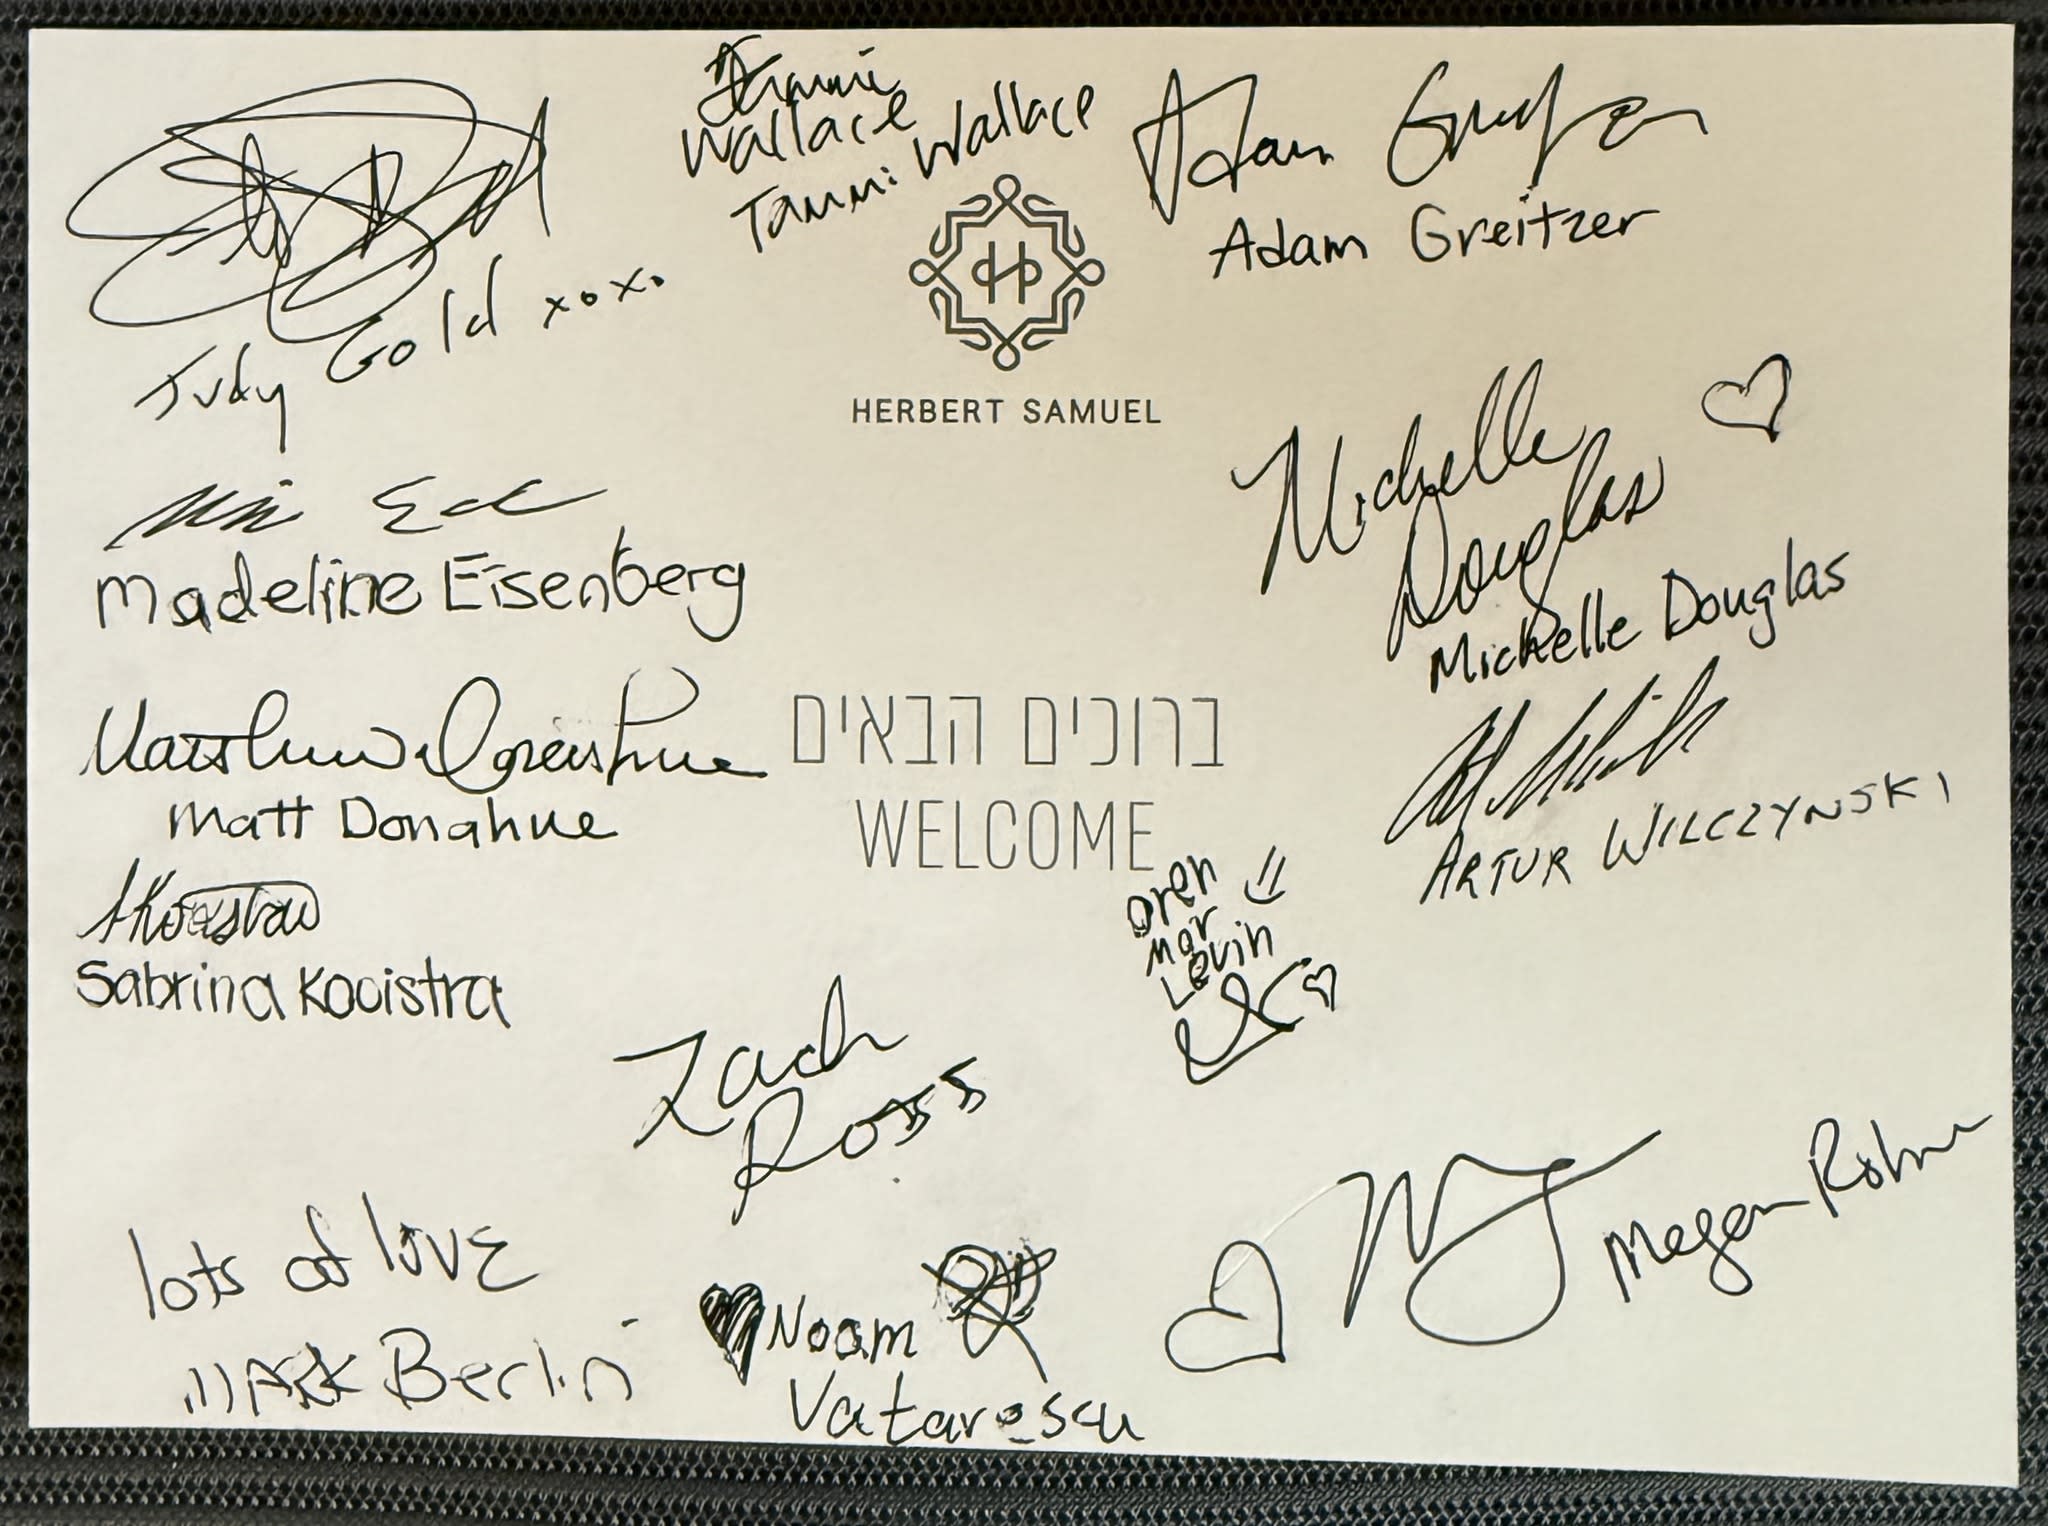 Tammi
Wallace
Tammi Wallace
Adam Greitzer
Adam Greitzer
Judy Gold xoxo
HERBERT SAMUEL
Michelle
Douglas
Michelle Douglas
Madeline Eisenberg
ברוכים הבאים
WELCOME
Matthew Donahue
Matt Donahue
ARTUR WILCZYNSKI
Oren
Mor
Levin
SKooistra
Sabrina Kooistra
Zach
Ross
Megan Rohn
lots of love
MARK Berlin
Noam
Vatarescu